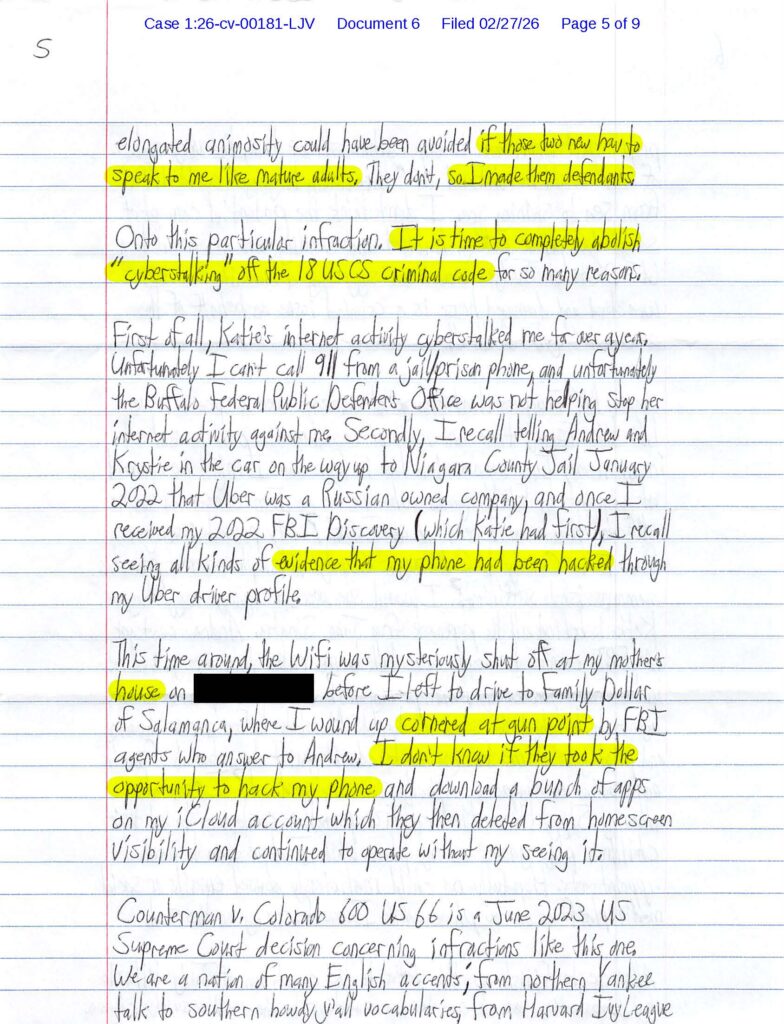 Case 1:26-cv-00181-LJV Document 6 Filed 02/27/26 Page 5 of 9
5
elongated animosity could have been avoided if those two new how to
speak to me like mature adults. They don't, so I made them defendants.
Onto this particular infraction. It is time to completely abolish
"cyberstalking" off the 18 USCS criminal code for so many reasons.
First of all, Katie's internet activity cyberstalked me for over a year.
Unfortunately I can't call 911 from a jail/prison phone, and unfortunately
the Buffalo Federal Public Defenders Office was not helping stop her
internet activity against me. Secondly, I recall telling Andrew and
Krystie in the car on the way up to Niagara County Jail January
2022 that Uber was a Russian owned company, and once I
received my 2022 FBI Discovery (which Katie had first), I recall
seeing all kinds of evidence that my phone had been hacked through
my Uber driver profile.
This time around, the Wifi was mysteriously shut off at my mother's
house on before I left to drive to Family Dollar
of Salamanca, where I wound up cornered at gun point by FBI
agents who answer to Andrew. I don't know if they took the
opportunity to hack my phone and download a bunch of apps
on my iCloud account which they then deleted from homescreen
visibility and continued to operate without my seeing it.
Counterman v. Colorado 600 US 66 is a June 2023 US
Supreme Court decision concerning infractions like this one.
We are a nation of many English accents; from northern Yankee
talk to southern howdy y'all vocabularies, from Harvard Ivy League